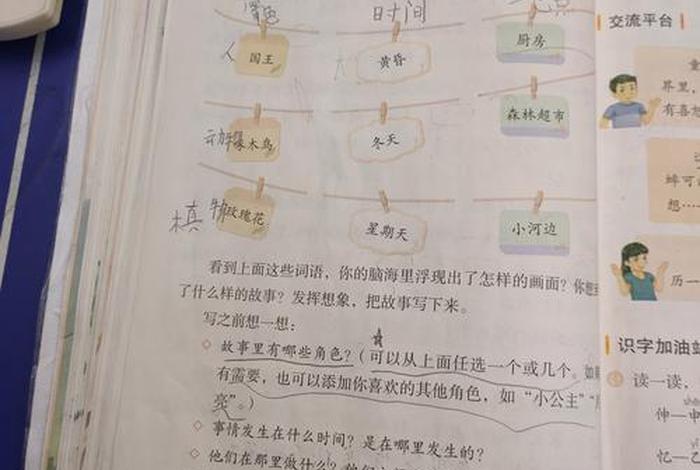 角色 时间 地点
人 国王 黄昏 厨房
啄木鸟 冬天 森林超市
植物 玫瑰花 星期天 小河边
看到上面这些词语，你的脑海里浮现出了怎样的画面？你想
了什么样的故事？发挥想象，把故事写下来。
写之前想一想：
◇ 故事里有哪些角色？（可以从上面任选一个或几个。如
有需要，也可以添加你喜欢的其他角色，如“小公主”“
亮”。）
◇ 事情发生在什么时间？是在哪里发生的？
◇ 他们在那里做什么？
交流平台
童
界里，
有喜
蜂可
想……
历一
识字加油站
读一读，
shēn
伸—申
忆—乙